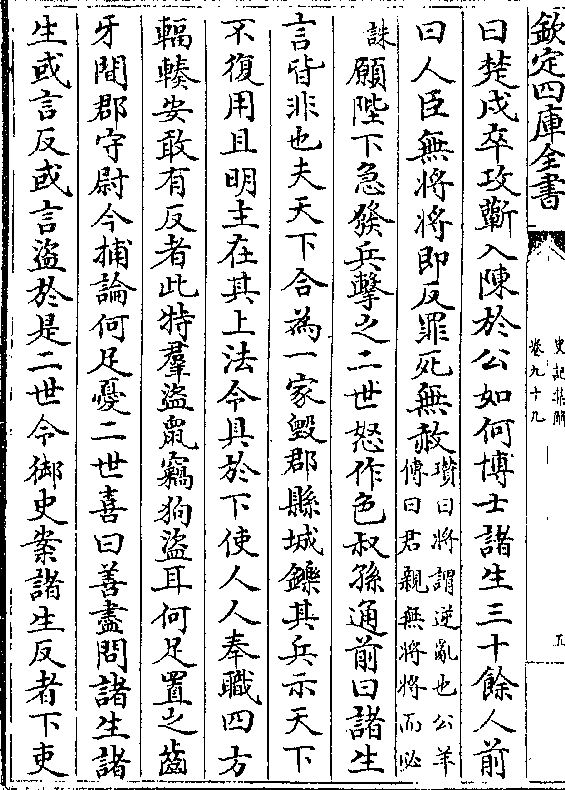 欽定四庫全書
史記集解
卷九十九
五
曰楚戍卒攻蘄入陳於公如何博士諸生三十餘人前
曰人臣無將將即反罪死無赦
瓚曰將謂逆亂也公羊
傳曰君親無將將而必
誅
願陛下急發兵擊之二世怒作色叔孫通前曰諸生
言皆非也夫天下合為一家毀郡縣城鑠其兵示天下
不復用且明主在其上法令具於下使人人奉職四方
輻輳安敢有反者此特羣盜䑕竊狗盜耳何足置之齒
牙間郡守尉今捕論何足憂二世喜曰善盡問諸生諸
生或言反或言盜於是二世令御史案諸生反者下吏